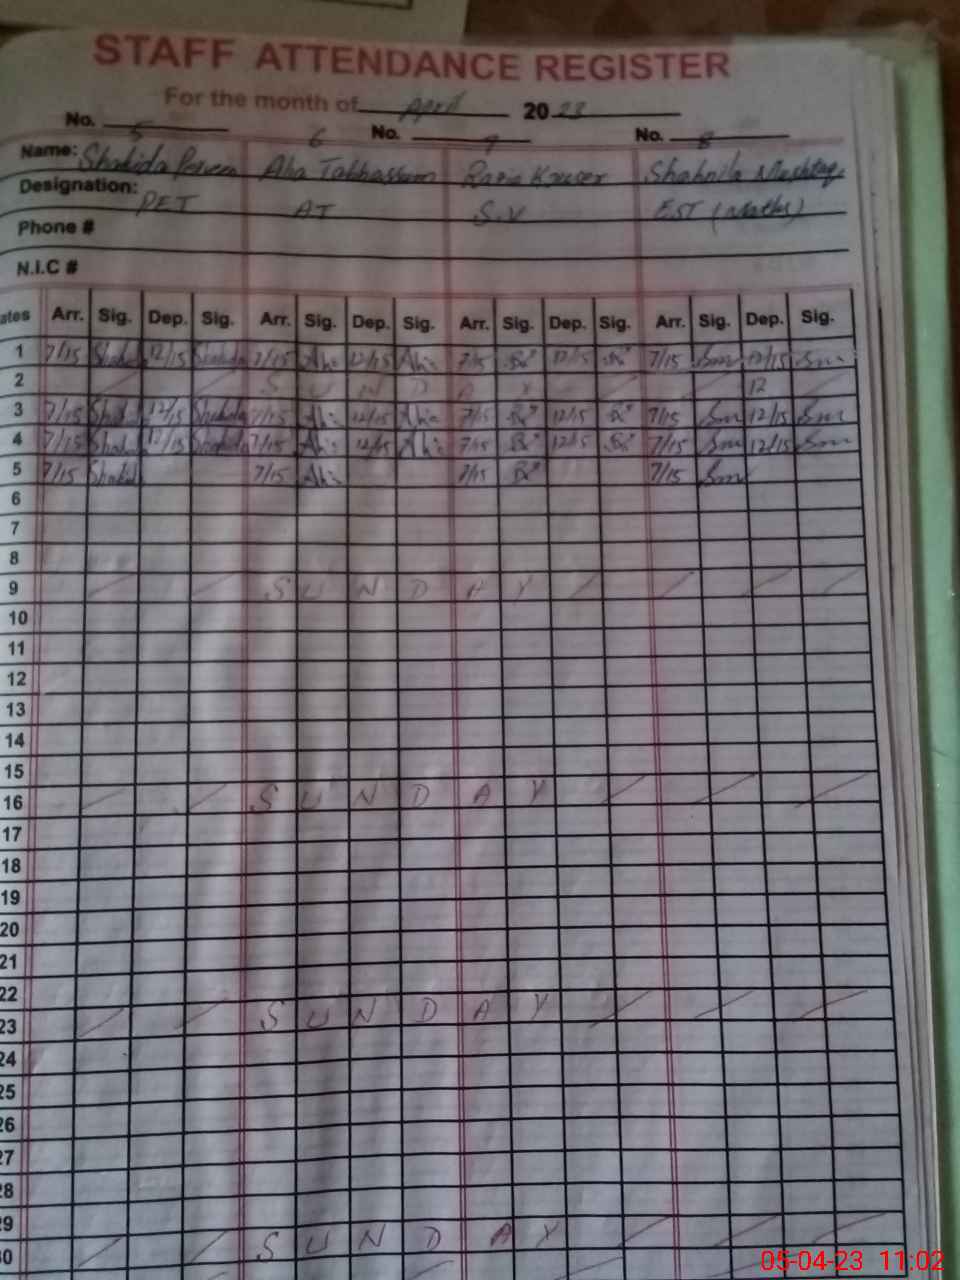 STAFF ATTENDANCE REGISTER
For the month of April 2023
No. 5 6 No. 7 No. 8
Name: Shahida Perveen Aha Tabbassum Razia Kouser Shahnila Mushtaq
Designation: PET AT S.V EST (Maths)
Phone #
N.I.C #
ates Arr. Sig. Dep. Sig. Arr. Sig. Dep. Sig. Arr. Sig. Dep. Sig. Arr. Sig. Dep. Sig.
1 7/15 Shahida 12/15 Shahida 7/15 12/15 7/15 12/15 7/15 12/15
2 S U N D A Y 12
3 7/15 Shahida 12/15 Shahida 7/15 12/15 7/15 12/15 7/15 12/15
4 7/15 Shahida 12/15 Shahida 7/15 12/15 7/15 12/15 7/15 12/15
5 7/15 Shahid 7/15 7/15 7/15
6
7
8
9 S U N D A Y
10
11
12
13
14
15
16 S U N D A Y
17
18
19
20
21
22
23 S U N D A Y
24
25
26
27
28
29
30 S U N D A Y
05-04-23 11:02